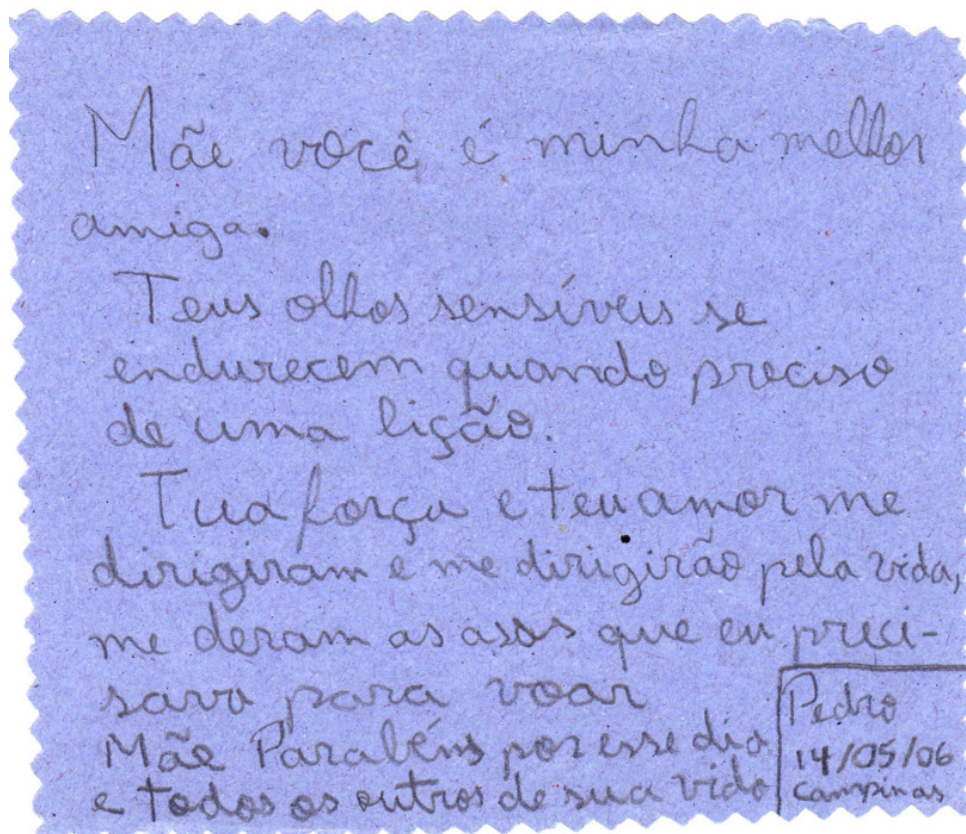 Mãe você é minha melhor
amiga.
Teus olhos sensíveis se
endurecem quando preciso
de uma lição.
Tua força e teu amor me
dirigiram e me dirigirão pela vida,
me deram as asas que eu preci-
sava para voar
Mãe Parabéns por esse dia
e todos os outros de sua vida
Pedro
14/05/06
Campinas